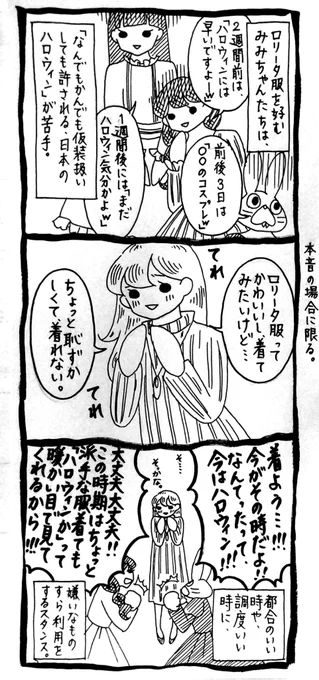 ロリータ服を好む
みみちゃんたちは、
2週間前は
「ハロウィンには
早いですよw」
前後3日は
「〇〇のコスプレ?」
1週間後には「まだ
ハロウィン気分かよw」
「なんでもかんでも仮装扱い
しても許される、日本の
ハロウィン」が苦手。
本音の場合に限る。
ロリータ服って
かわいいし、着て
みたいけど…
てれ
ちょっと恥ずか
しくて着れない。
てれ
着よう…!!!
今がその時だよ!!
なんてったって、
今はハロウィン!!!
そ…
そっかな。
大丈夫大丈夫!!
この時期はちょっと
派手な服着ても
「ハロウィンか」って
暖かい目で見て
くれるから!!!
都合のいい
時や、
調度いい
時に、
嫌いなもの
すら利用を
するスタンス。